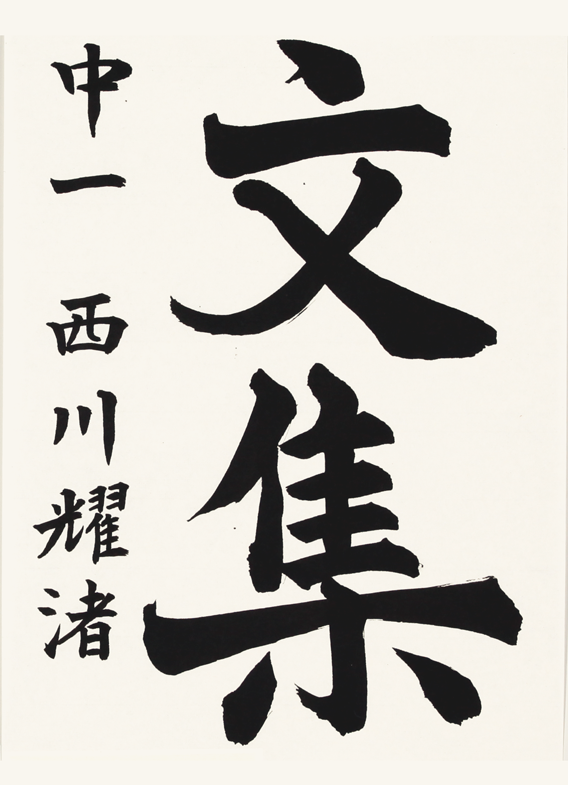 文集
中一 西川耀渚